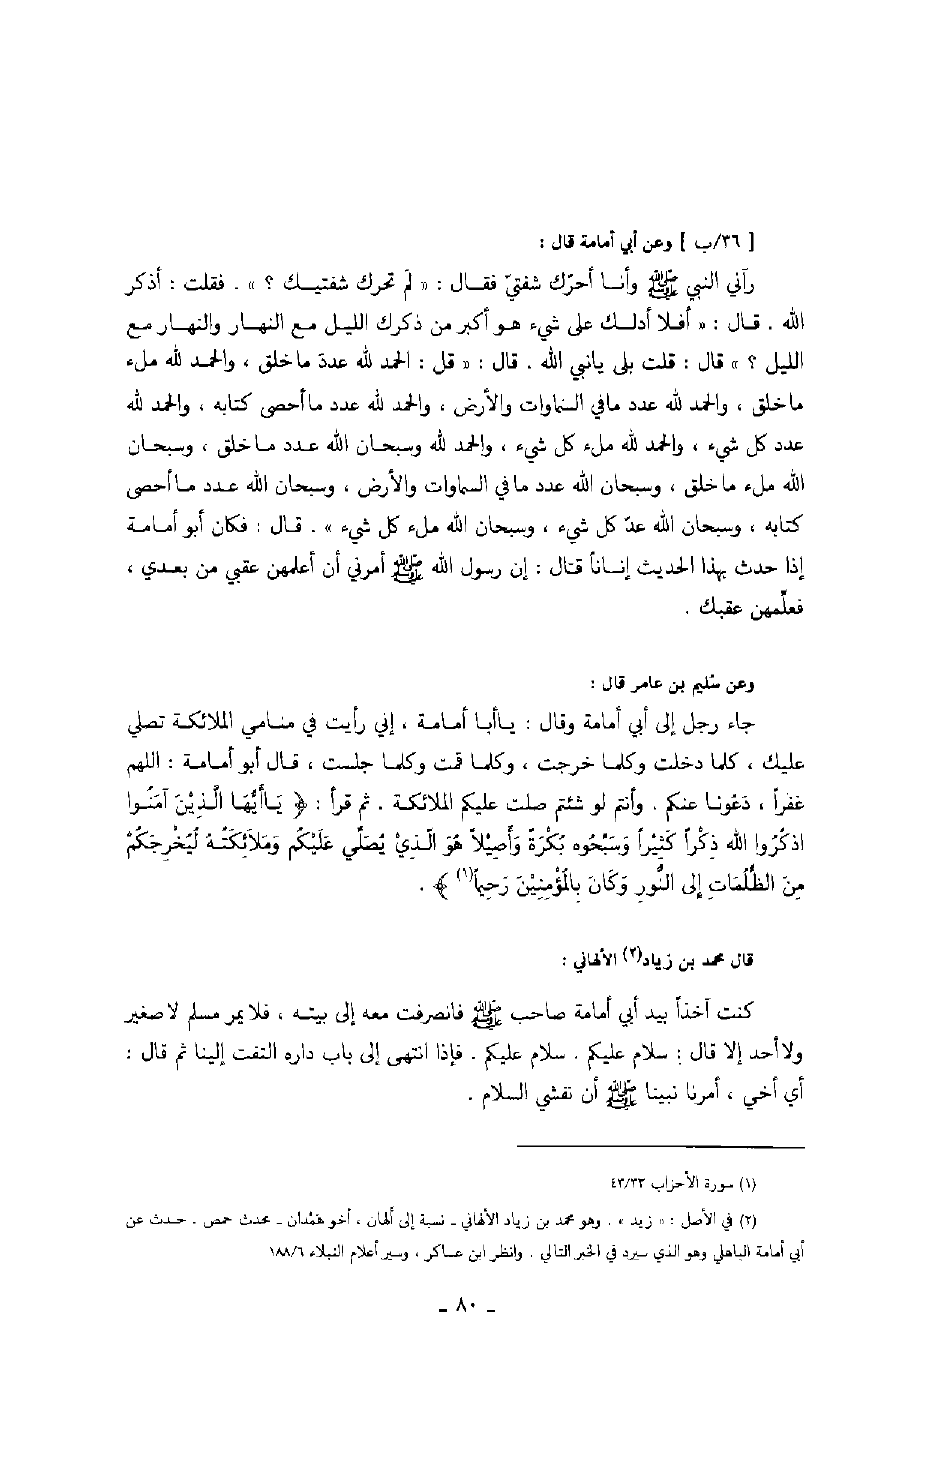 [ ٣٦/ب ] وعن أبي أمامة قال :
رآني النبي ﷺ وأنا أحرّك شفتيّ فقال : « لَم تحرك شفتيك ؟ » . فقلت : أذكر
الله . قال : « أفلا أدلك على شيء هو أكبر من ذكرك الليل مع النهار والنهار مع
الليل ؟ » قال : قلت بلى يانبي الله . قال : « قل : الحمد لله عددَ ماخلق ، والحمد لله ملء
ماخلق ، والحمد لله عدد مافي السماوات والأرض ، والحمد لله عدد ماأحصى كتابه ، والحمد لله
عدد كل شيء ، والحمد لله ملء كل شيء ، والحمد لله وسبحان الله عدد ماخلق ، وسبحان
الله ملء ماخلق ، وسبحان الله عدد مافي السماوات والأرض ، وسبحان الله عدد ماأحصى
كتابه ، وسبحان الله عدّ كل شيء ، وسبحان الله ملء كل شيء » . قال : فكان أبو أمامة
إذا حدث بهذا الحديث إنساناً قال : إن رسول الله ﷺ أمرني أن أعلمهن عقبي من بعدي ،
فعلِّمهن عقبك .
وعن سُليم بن عامر قال :
جاء رجل إلى أبي أمامة وقال : ياأبا أمامة ، إني رأيت في منامي الملائكة تصلي
عليك ، كلما دخلت وكلما خرجت ، وكلما قمت وكلما جلست ، قال أبو أمامة : اللهم
غفراً ، دَعُونا عنكم . وأنتم لو شئتم صلت عليكم الملائكة . ثم قرأ : ﴿ يَاأَيُّهَا الَّذِيْنَ آمَنُوا
اذكُرُوا الله ذِكْراً كَثِيْراً وَسَبِّحُوه بُكْرَةً وَأَصِيْلاً هُوَ الَّذِيْ يُصَلِّي عَلَيْكُمْ وَمَلاَئِكَتُهُ لِيُخْرِجَكُمْ
مِنَ الظُّلُمَاتِ إِلى النُّورِ وَكَانَ بِالمُؤْمِنِيْنَ رَحِيماً(١) ﴾ .
قال محمد بن زياد(٢) الألهاني :
كنت آخذاً بيد أبي أمامة صاحب ﷺ فانصرفت معه إلى بيته ، فلا يمر مسلم لاصغير
ولاأحد إلا قال : سلام عليكم . سلام عليكم . فإذا انتهى إلى باب داره التفت إلينا ثم قال :
أي أخي ، أمرنا نبينا ﷺ أن نفشي السلام .
(١) سورة الأحزاب ٤٣/٣٣
(٢) في الأصل : « زيد » . وهو محمد بن زياد الألهاني ـ نسبة إلى ألهان ، أخو همْدان ـ محدث حمص . حدث عن
أبي أمامة الباهلي وهو الذي سيرد في الخبر التالي . وانظر ابن عساكر ، وسير أعلام النبلاء ١٨٨/٦
ـ ٨٠ ـ